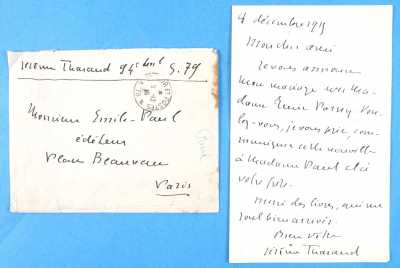 Jérôme Tharaud 94e terl S. 79
Monsieur Emile-Paul
éditeur
Place Beauveau
Paris
4 décembre 1915
Mon cher ami
Je vous annonce
mon mariage avec Ma-
dame Vou-
lez-vous, je vous prie, com-
muniquer cette nouvelle
à Madame Paul et à
votre frère.
Merci des livres, qui me
sont bien arrivés.
Bien vôtre
Jérôme Tharaud